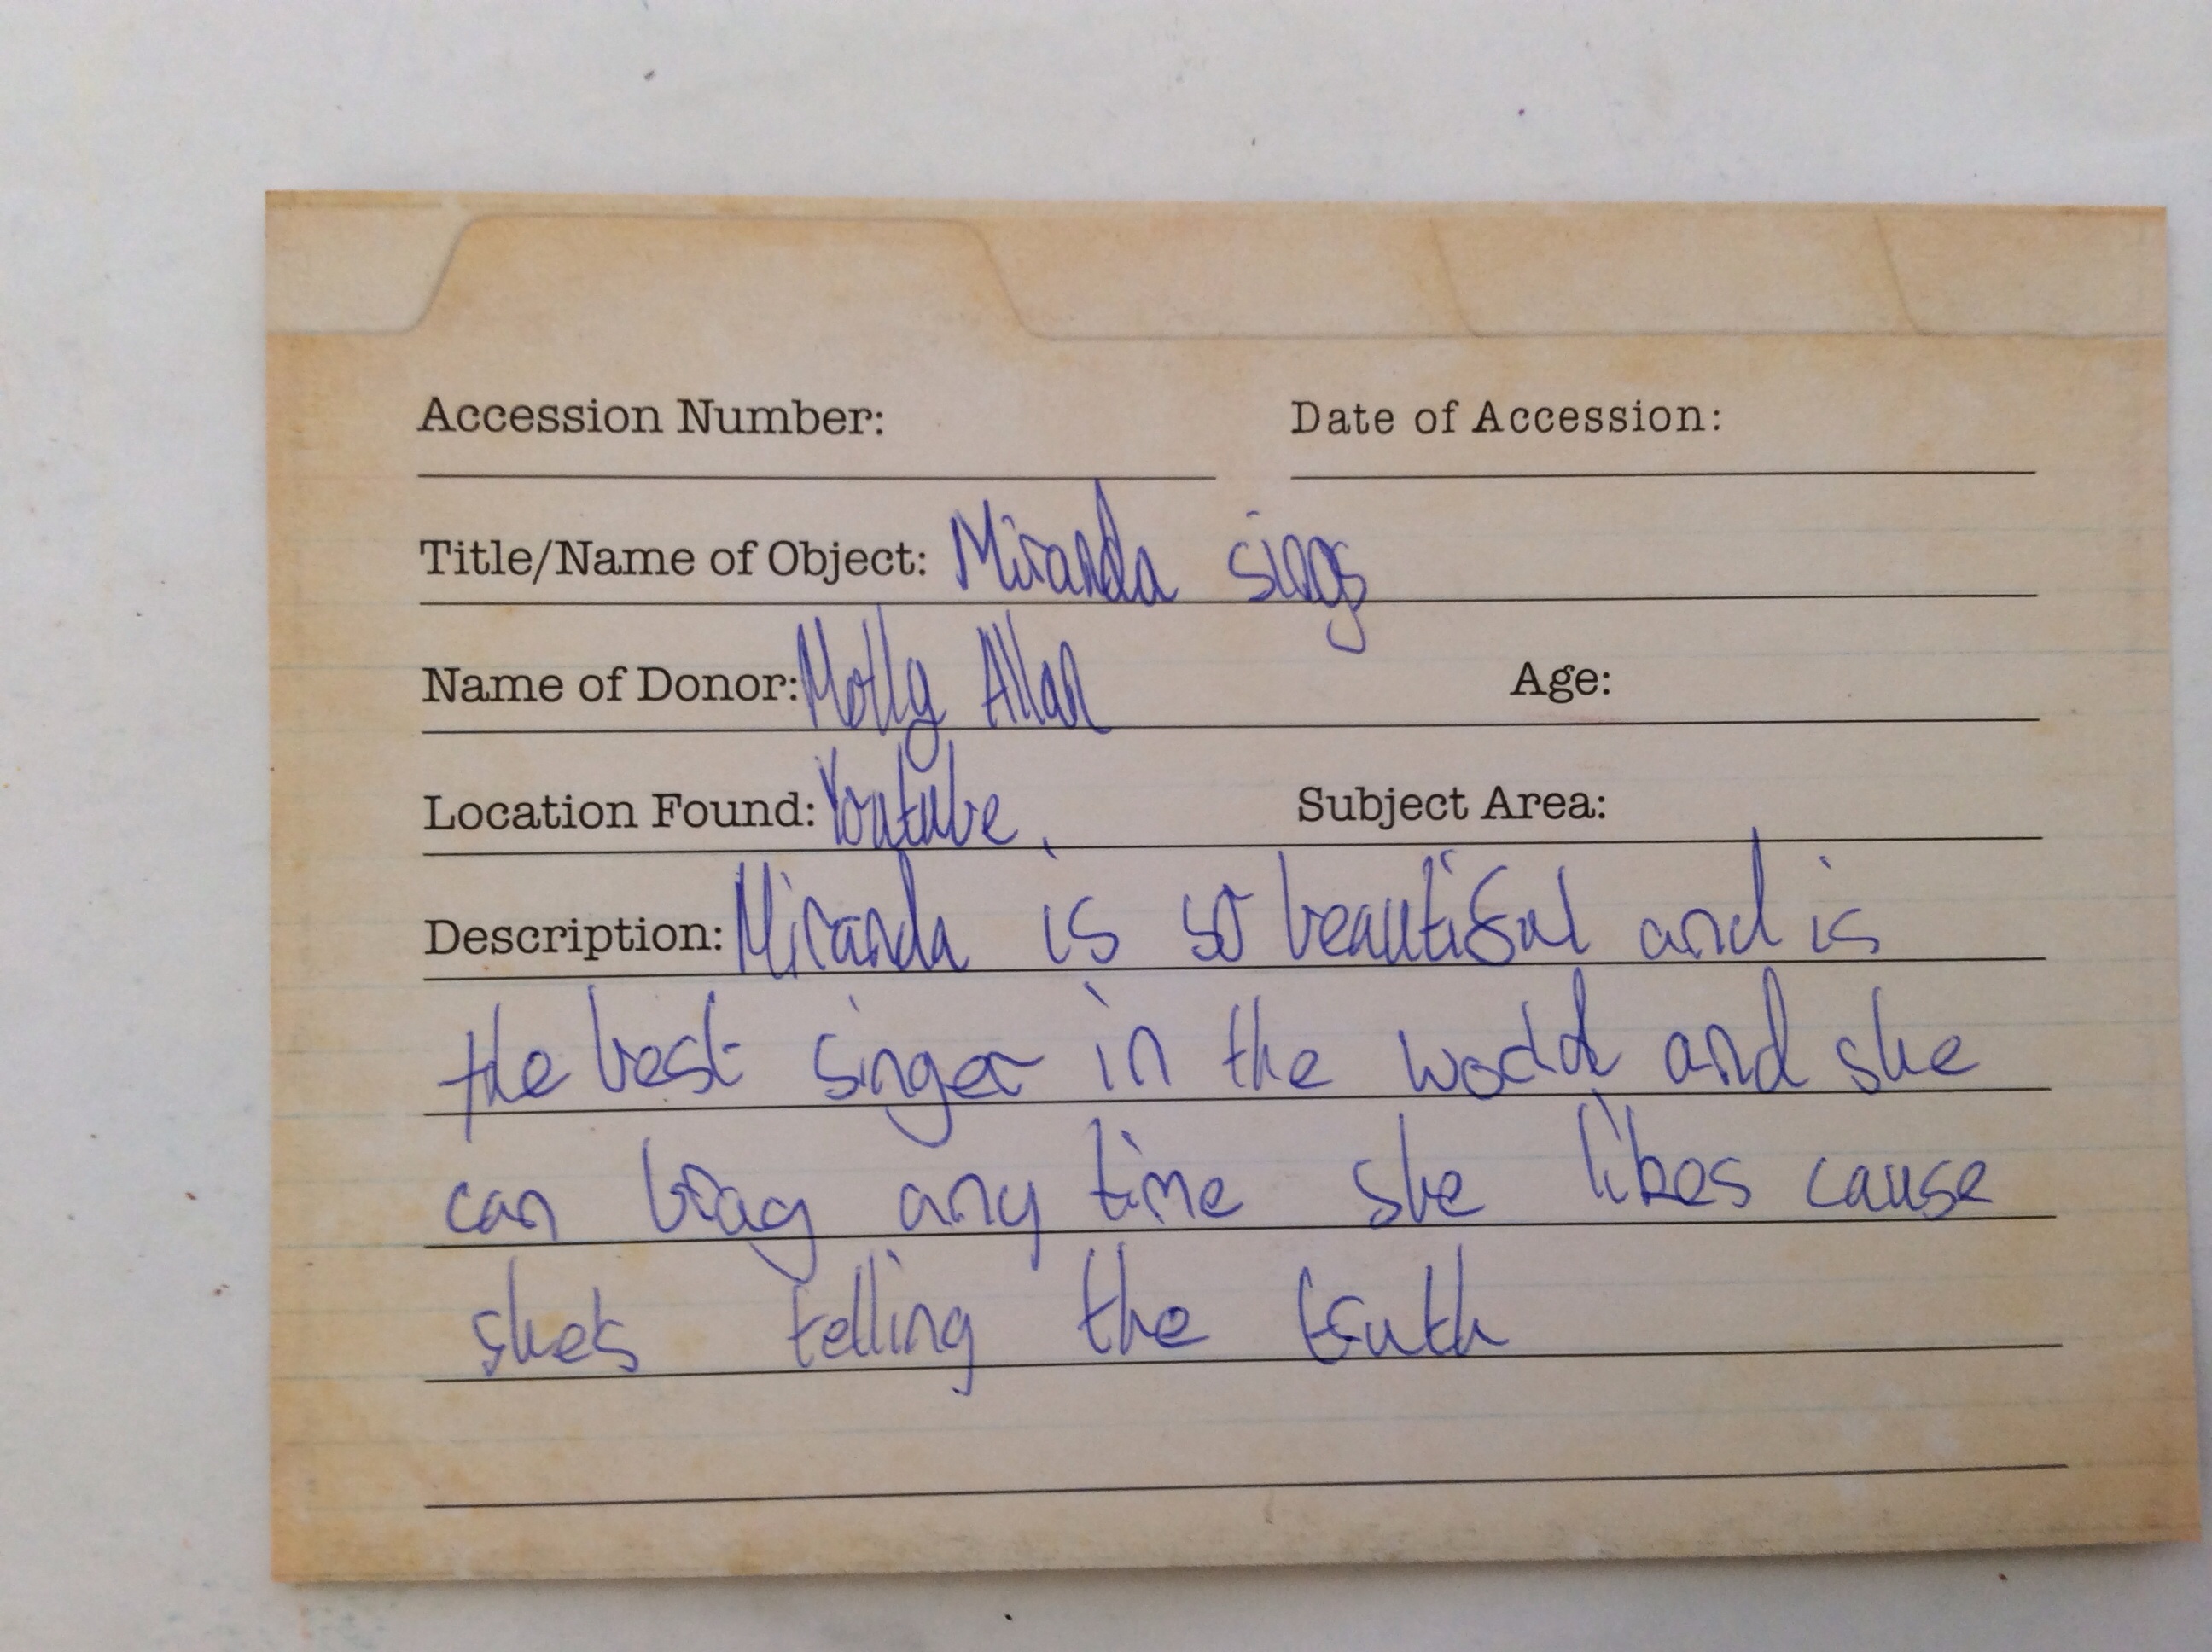 Accession Number: Date of Accession:
Title/Name of Object: Miranda sings
Name of Donor: Molly Allan Age:
Location Found: Youtube. Subject Area:
Description: Miranda is so beautiful and is
the best singer in the world and she
can brag any time she likes cause
she's telling the truth